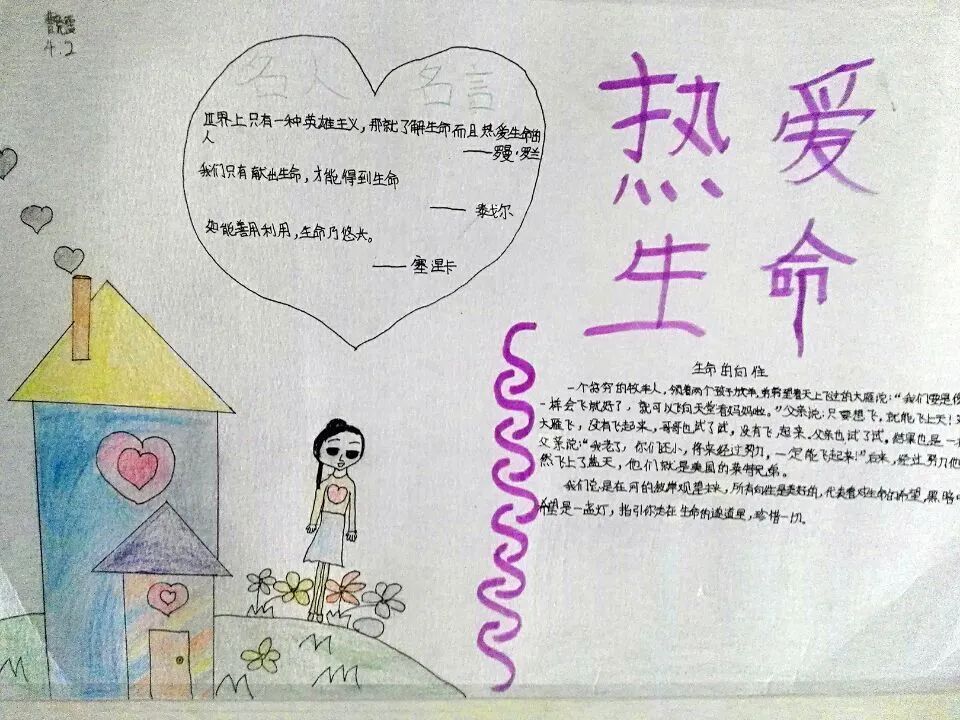 4.2
名人 名言
世界上只有一种英雄主义,那就了解生命而且热爱生命的
人
——罗曼·罗兰
我们只有献出生命,才能得到生命
——泰戈尔
如能善用利用,生命乃悠长。
——塞涅卡
热爱
生命
生命的向往
一个贫穷的牧羊人,领着两个孩子放羊,看着天上飞过的大雁说:“我们要是像
一样会飞就好了,就可以飞向天堂看妈妈啦。”父亲说:只要想飞,就能飞上天!
大雁飞,没有飞起来,哥哥也试了试,没有飞起来,父亲也试了试。结果也是一
父亲说:“我老了,你们还小,将来经过努力,一定能飞起来!”后来,经过努力他
然飞上了蓝天,他们就是美国的莱特兄弟。
我们总是在河的彼岸观望未来,所有向往是美好的,代表着对生命的希望,黑暗中
希望是一盏灯,指引你走在生命的隧道里,珍惜一切。